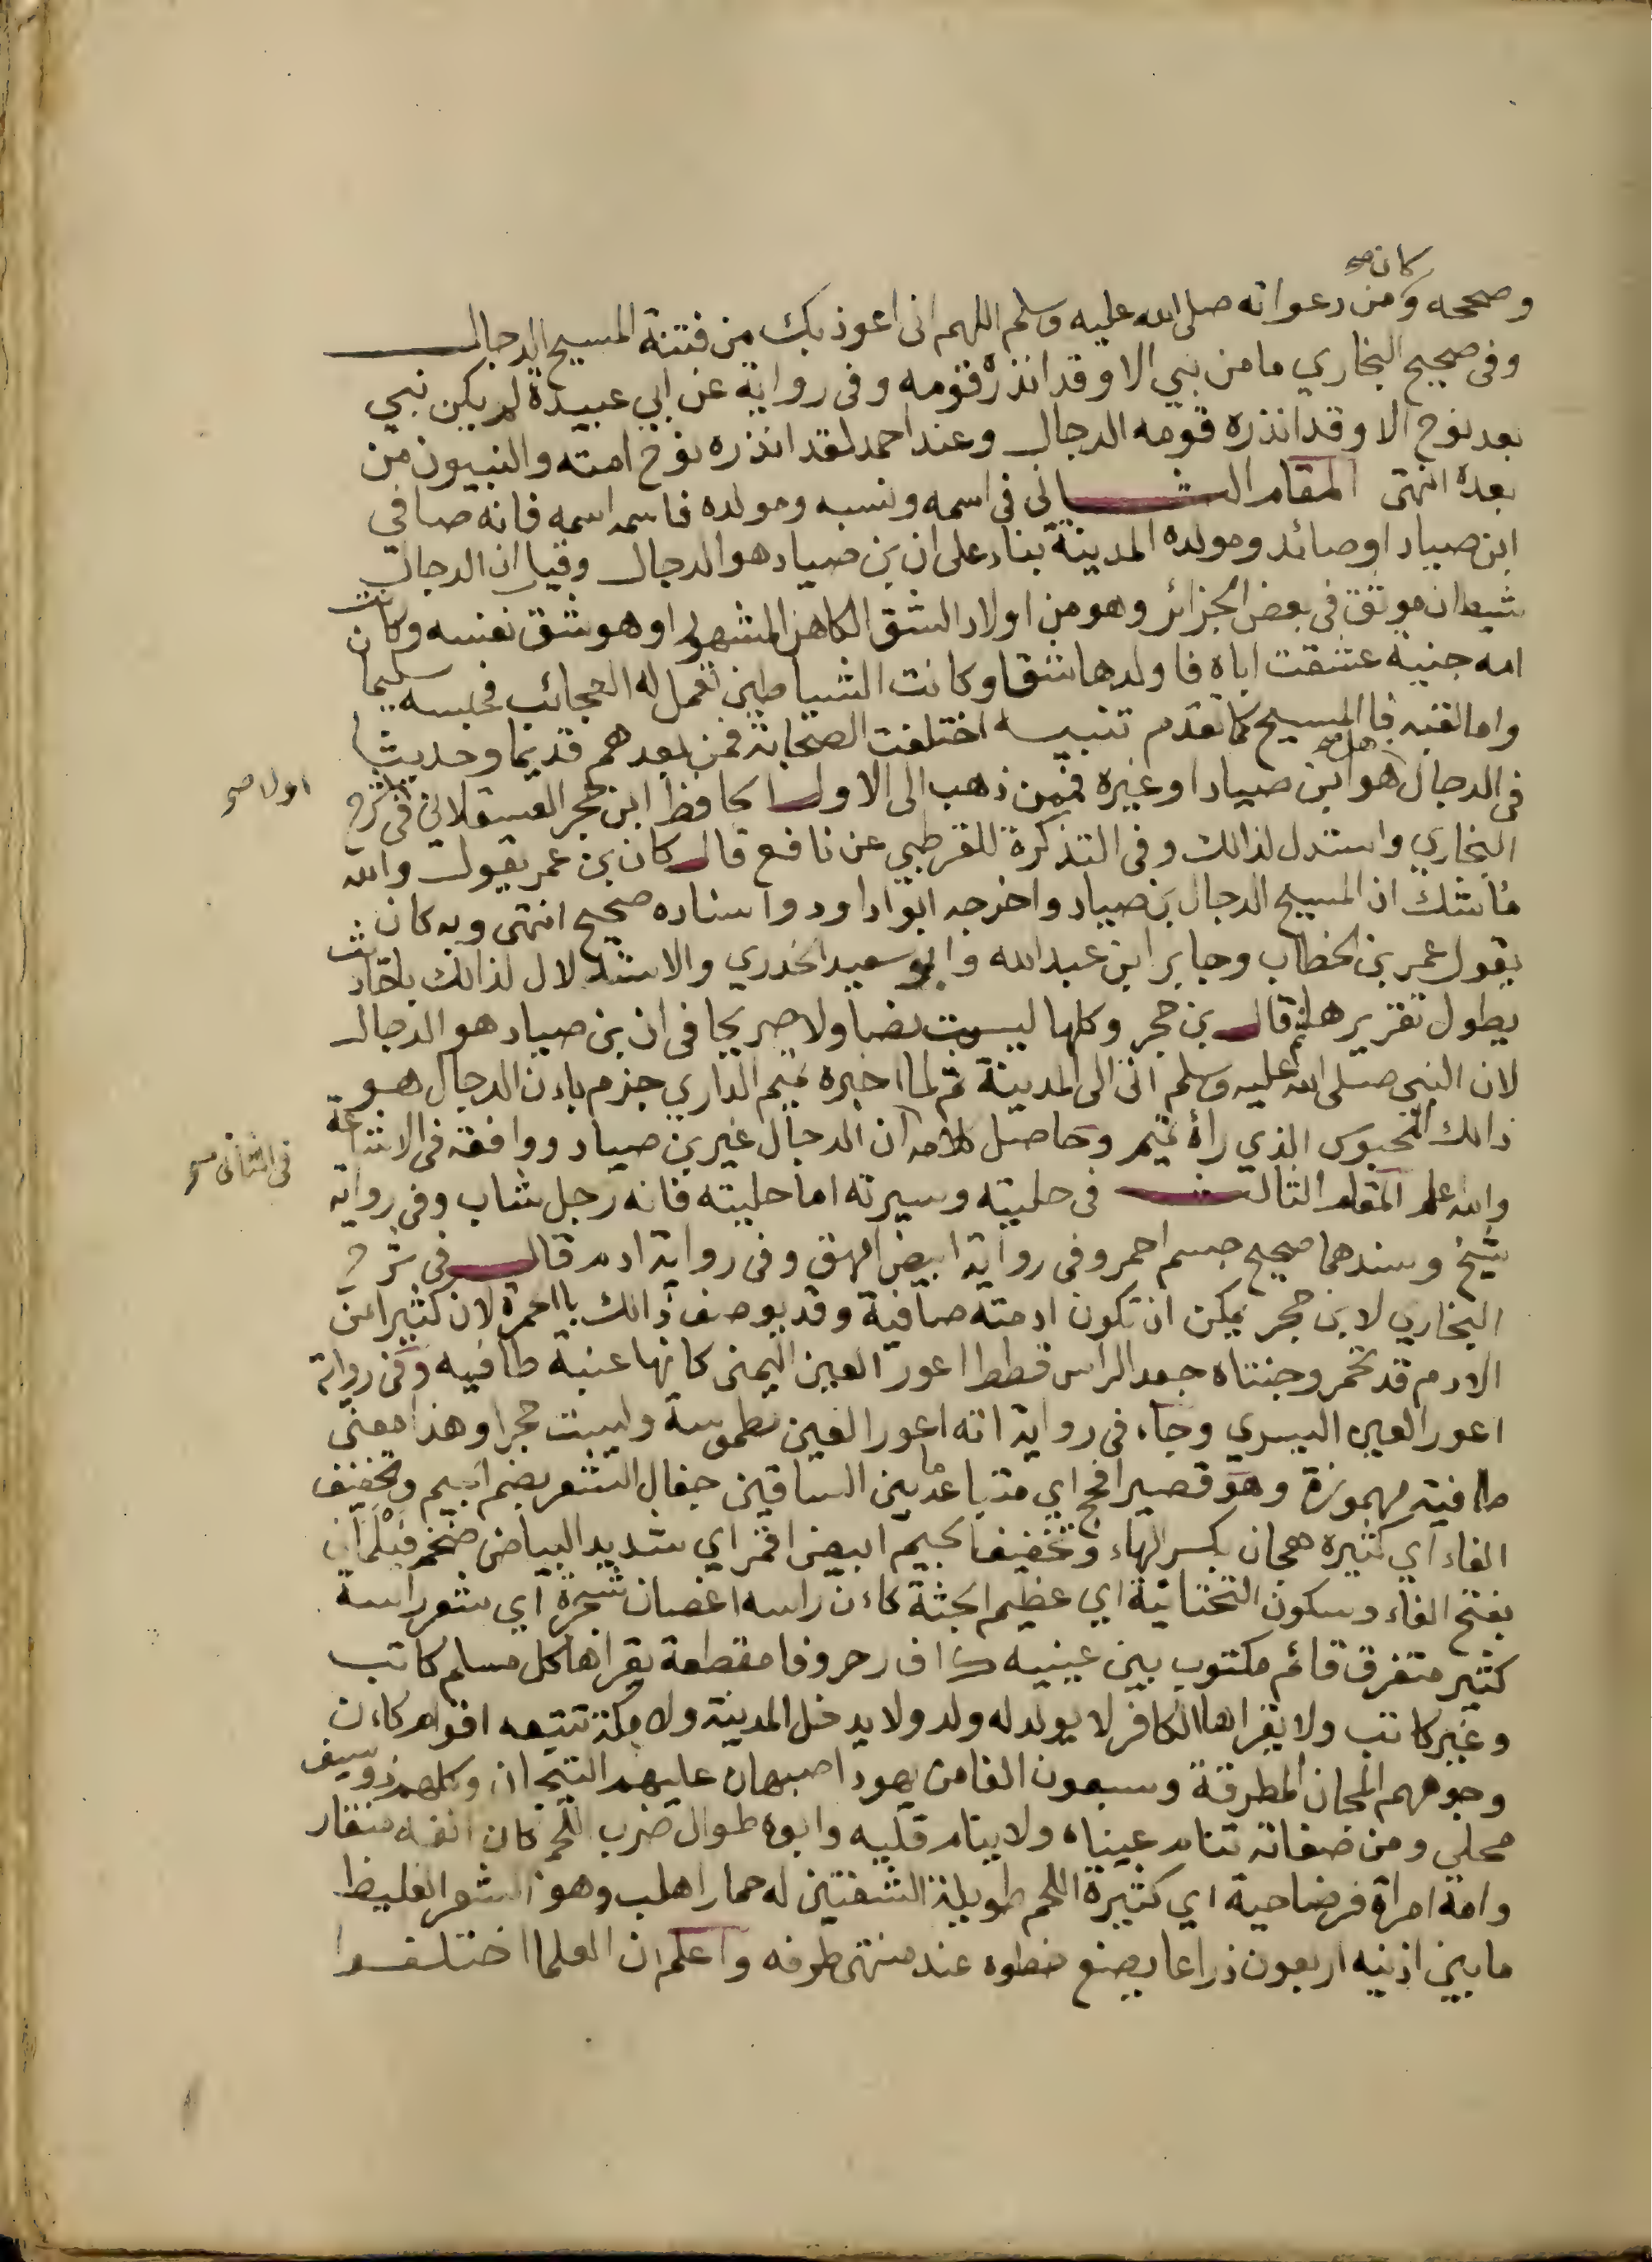 كان صح
وصححه ومن دعواته صلى الله عليه وسلم اللهم اني اعوذ بك من فتنة المسيح الدجال
وفي صحيح البخاري ما من نبي الا وقد انذره قومه وفي رواية عن ابي عبيدة لم يكن نبي
بعد نوح الا وقد انذره قومه الدجال وعند احمد لقد انذره نوح امته والنبيون من
بعده انتهى المقام الثاني في اسمه ونسبه ومولده فاسمه اسمه فانه صافي
ابن صياد او صائد ومولده المدينة بناء على ان بن صياد هو الدجال وقيل ان الدجال
شيطان موثق في بعض الجزائر وهو من اولاد الشق الكاهن المشهور او هو شق نفسه وكانت
امه جنية عشقت اباه فاولدها شقا وكانت الشياطين تعمل له العجائب فحبسه سليمان
واما لقبه فالمسيح كما تقدم تنبيه اختلفت الصحابة فمن بعدهم قديما وحديثا
في الدجال هل صح هو ابن صياد او غيره فمن ذهب الى الاول الحافظ ابن حجر العسقلاني في شرح
اولا صح
البخاري واستدل لذالك وفي التذكرة للقرطبي عن نافع قال كان بن عمر يقول والله
ما شك ان المسيح الدجال بن صياد واخرجه ابوا داود واسناده صحيح انتهى وبه كان
يقول عمر بن الخطاب وجابر ابن عبد الله وابو سعيد الخدري والاستدلال لذالك باحاديث
يطول تقريرها ثم قال بن حجر وكلها ليست نصا ولا صريحا في ان بن صياد هو الدجال
لان النبي صلى الله عليه وسلم اتى الى المدينة ثم لما اخبره تميم الداري جزم باءن الدجال هو
ذالك المحبوس الذي رأه تميم وحاصل كلامه ان الدجال غير بن صياد ووافقه في الاشاعة
في الثاني صح
والله علم المقام الثالث في حليته وسيرته اما حليته فانه رجل شاب وفي رواية
شيخ وسندهما صحيح جسم احمر وفي رواية ابيض امهق وفي رواية ادم قال في شرح
البخاري لابن حجر يمكن ان تكون ادمته صافية وقد يوصف ذالك باالحمرة لان كثيرا من
الادم قد تحمر وجنتاه جعد الراس قطط اعور العين اليمنى كانها عنبة طافيه وفي رواية
اعور العين اليسري وجاء في رواية انه اعور العين مطموسة وليست حجرا وهذا معنى
طافية مهموزة وهو قصير افحج اي متباعد ما بين الساقين جفال الشعر بضم الجيم وتخفيف
الفاء اي كثيره هجان بكسر الهاء وتخفيف الجيم ابيض اقمر اي شديد البياض ضخم فيلماني
بفتح الفاء وسكون التحتانية اي عظيم الجثة كاءن راسه اغصان شجرة اي شعر راسه
كثير متفرق قائم مكتوب بين عينيه ك ا ف ر حروفا مقطعة يقراها كل مسلم كاتب
وغير كاتب ولا يقراها الكافر لا يولد له ولد ولا يدخل المدينة ولا مكة تتبعه اقوام كاءن
وجوههم المجان المطرقة وسبعون الفا من يهود اصبهان عليهم التيجان وكلهم ذو سيف
محلى ومن صفاته تنام عيناه ولا ينام قلبه وابوه طوال ضرب اللحم كان انفه منقار
وامه امراة فرضاحية اي كثيرة اللحم طويلة الثديين له حمار اهلب وهو الشعر الغليظ
ما بين اذنيه اربعون ذراعا يضع خطوه عند منتهى طرفه واعلم ان العلما اختلفوا